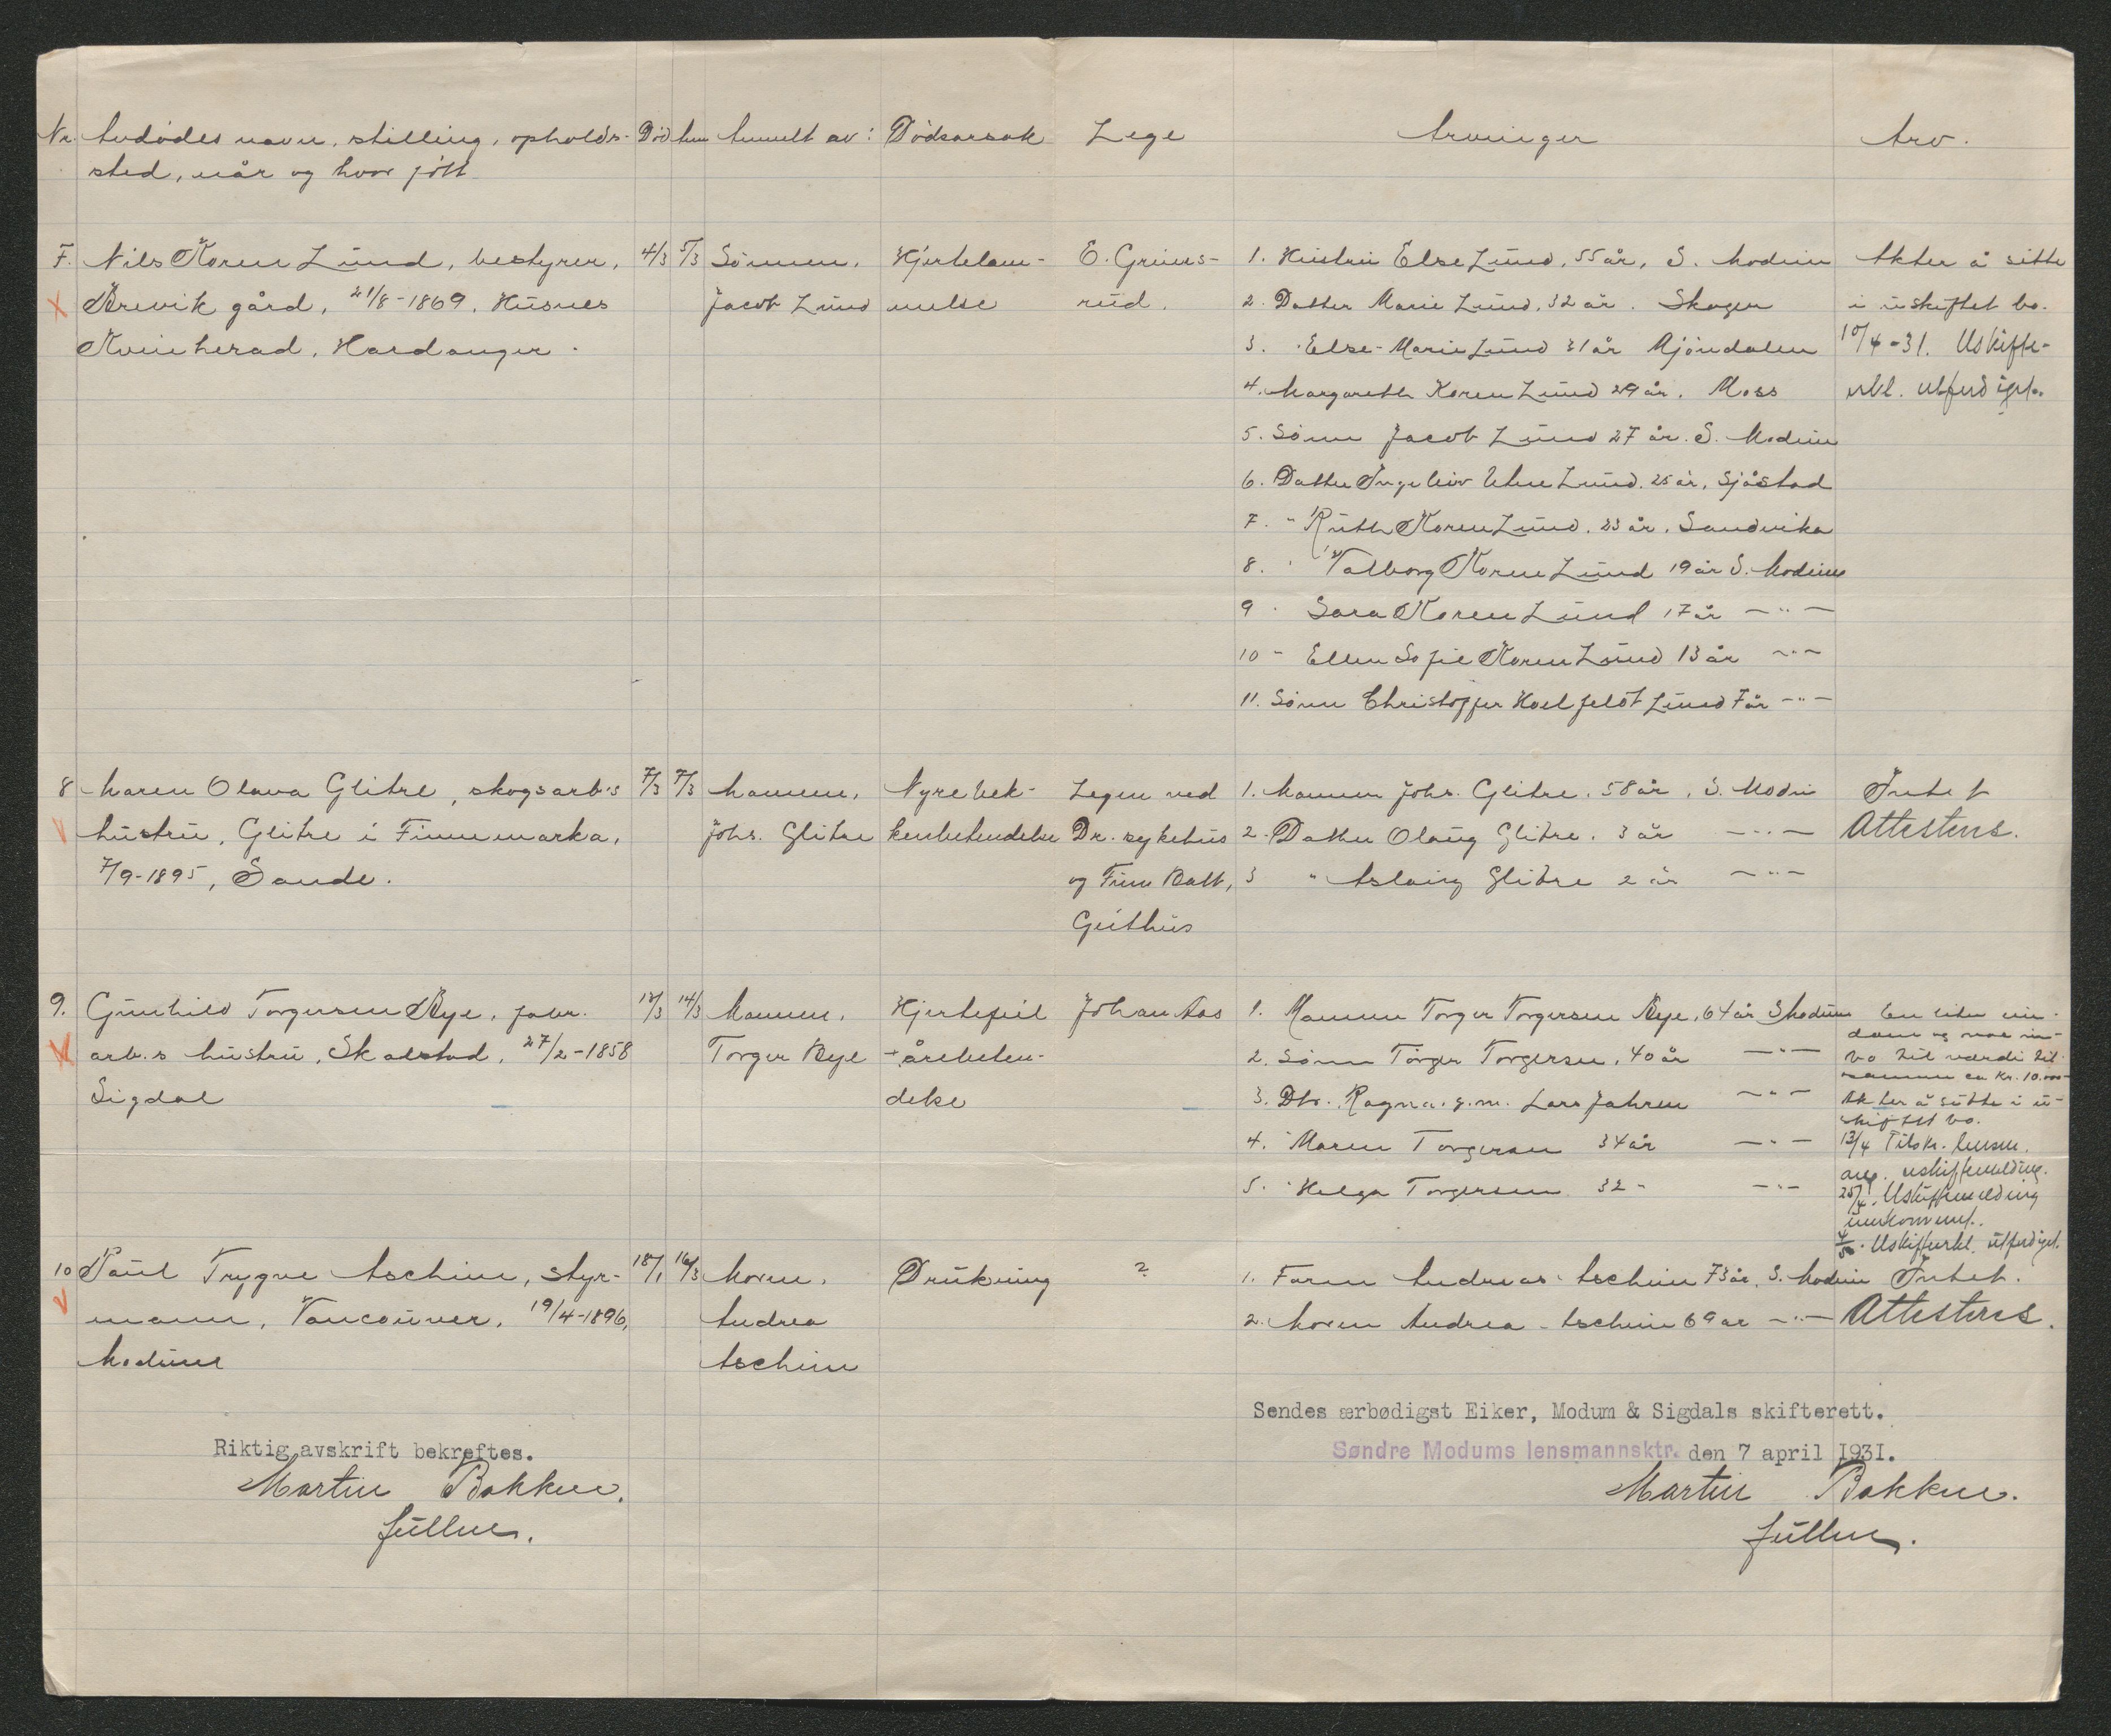 Nr. Avdødes navn, stilling, opholds- Død Anmeldt av: Dødsarsak Lege Arvinger Arv.
sted, når og hvor født
7. Nils Koren Lund, bestyrer, 4/3 5/3 Sønnen, Hjertelam- E. Grims- 1. Hustru Else Lund, 55 år, S. Modum Akter å sitte
Brevik gård, 21/8-1869, Husnes Jacob Lund melse rud. 2. Datter Marie Lund, 32 år. Skoger i uskiftet bo.
Kvinherad, Hardanger. 3. " Else-Marie Lund 31 år Mjöndalen 10/4-31. Uskifte-
4. Margareth Koren Lund 29 år. Moss erkl. utferdiget.
5. Sønn Jacob Lund 27 år. S. Modum
6. Datter Ingeleiv Lund. 25 år, Sjåstad
7. " Ruth Koren Lund. 23 år. Sandvika
8. " Valborg Koren Lund 19 år S. Modum
9 " Sara Koren Lund 17 år —"—
10 " Ellen Sofie Koren Lund 13 år —"—
11. Sønn Christoffer Lund 7 år —"—
8 Maren Olava Glitre, skogsarb.s 7/3 7/3 Mannen, Nyrebek- Legen ved 1. Mannen Johs. Glitre. 58 år, S. Modum Intet
hustru, Glitre i Finnemarka, Johs. Glitre kenbetendelse Dr. sykehus 2. Datter Olaug Glitre. 3 år —"— Attesteres.
7/9-1895, Sande. og Finn Batt, 3 " Aslaug Glitre 2 år —"—
Geithus
9. Gunhild Torgersen Bye, fabr. 12/3 14/3 Mannen, Hjertefeil Johan Aas 1. Mannen Torger Torgersen Bye, 64 år S Modum En liten eien-
arb.s hustru, Skalstad, 27/2-1858 Torger Bye + årebeten- 2. Sønn Torger Torgersen, 40 år —"— dom og noe inn-
Sigdal delse 3. Dtr. Ragna. g.m. Lars Jahren —"— bo til værdi til-
sammen ca kr. 10.000
Akter å sitte i u-
skiftet bo.
4. " Maren Torgersen 34 år —"— 13/4 Tilskr. lensm.
ang. uskiftemelding.
5. " Helga Torgersen 32 " —"— 25/4. Uskiftemelding
innkommet.
4/5. Uskifteerkl. utferdiget.
10 Paul Trygve Aschim, styr- 18/1 16/3 Moren, Drukning ? 1. Faren Andreas Aschim 73 år, S. Modum Intet.
mann, Vancouver, 19/4-1896, Andrea 2. Moren Andrea Aschim 69 år —"— Attesteres.
Modum Aschim
Sendes ærbødigst Eiker, Modum & Sigdals skifterett.
Riktig avskrift bekreftes. Søndre Modums lensmannsktr. den 7 april 1931.
Martin Bakken. Martin Bakken.
fullm. fullm.